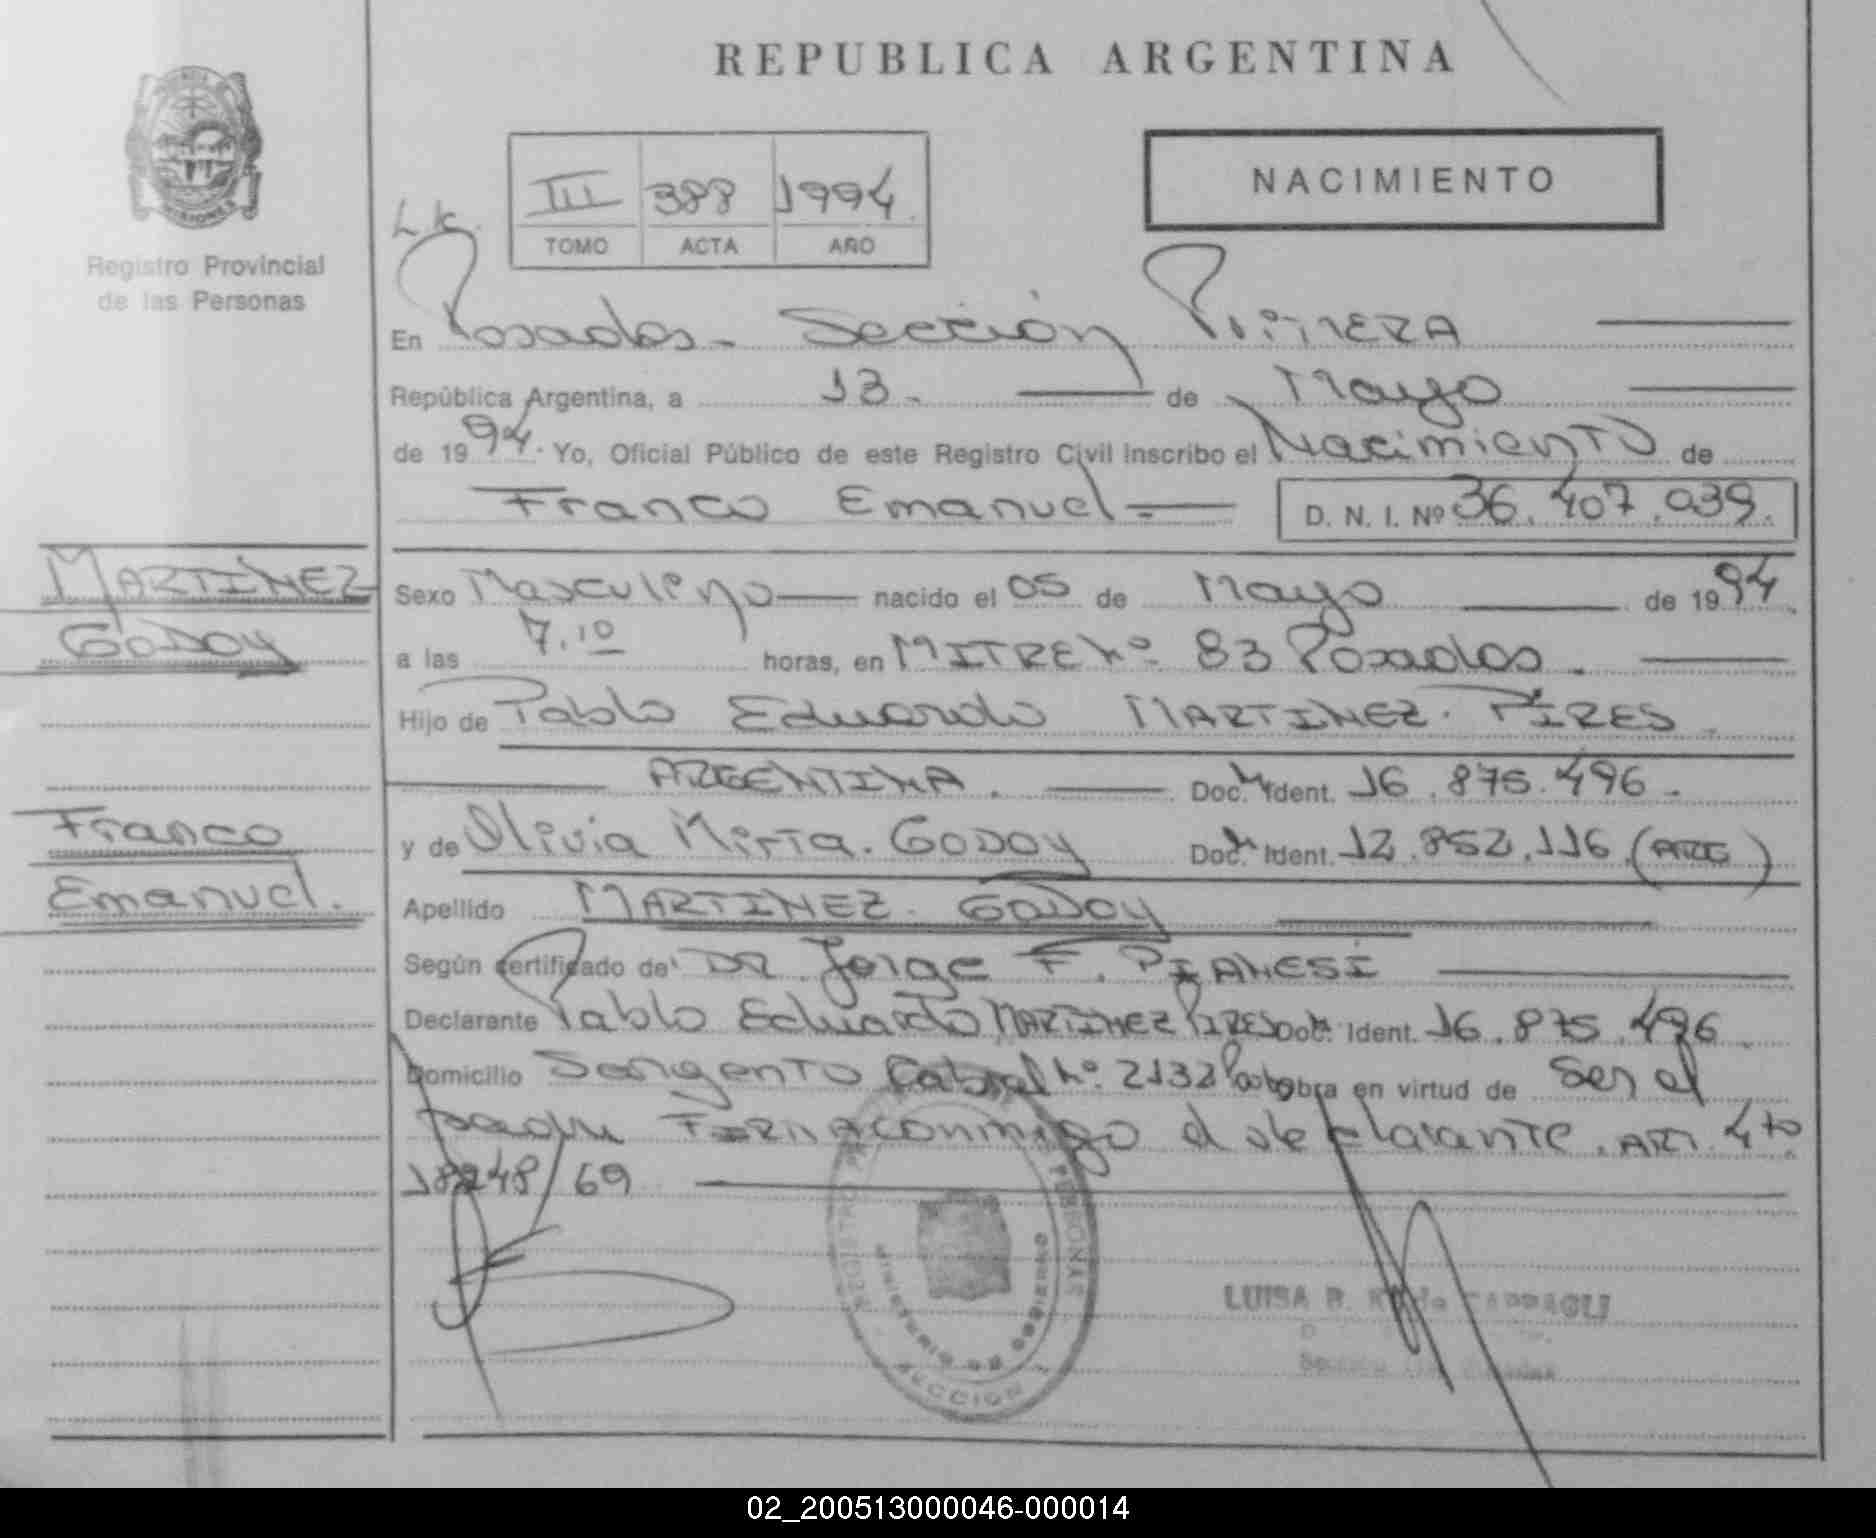 REPUBLICA ARGENTINA
MISIONES
Registro Provincial
de las Personas
III 388 1994
TOMO ACTA AÑO
NACIMIENTO
En Posadas - Sección PRIMERA
República Argentina, a 13. de Mayo
de 1994. Yo, Oficial Público de este Registro Civil Inscribo el Nacimiento de
Franco Emanuel D. N. I. Nº 36.407.039.
MARTINEZ
GODOY
Franco
Emanuel.
Sexo Masculino nacido el 05 de Mayo de 1994.
a las 7.10 horas, en MITRE Nº 83 Posadas.
Hijo de Pablo Eduardo MARTINEZ. PIRES.
ARGENTINA. Doc. Ident. 16.875.496.
y de Olivia Mirta. GODOY Doc. Ident. 12.852.116. (ARG)
Apellido MARTINEZ. GODOY
Según certificado de DR. Jorge F. PIANESI
Declarante Pablo Eduardo MARTINEZ PIRES Doc. Ident. 16.875.496.
Domicilio Sargento Cabral Nº 2132 obra en virtud de Ser el
padre FIRMA conmigo el declarante. ART. 4to
18248/69
REGISTRO PERSONAS
MINISTERIO DE GOBIERNO
SECCION 1
LUISA B. de
02_200513000046-000014